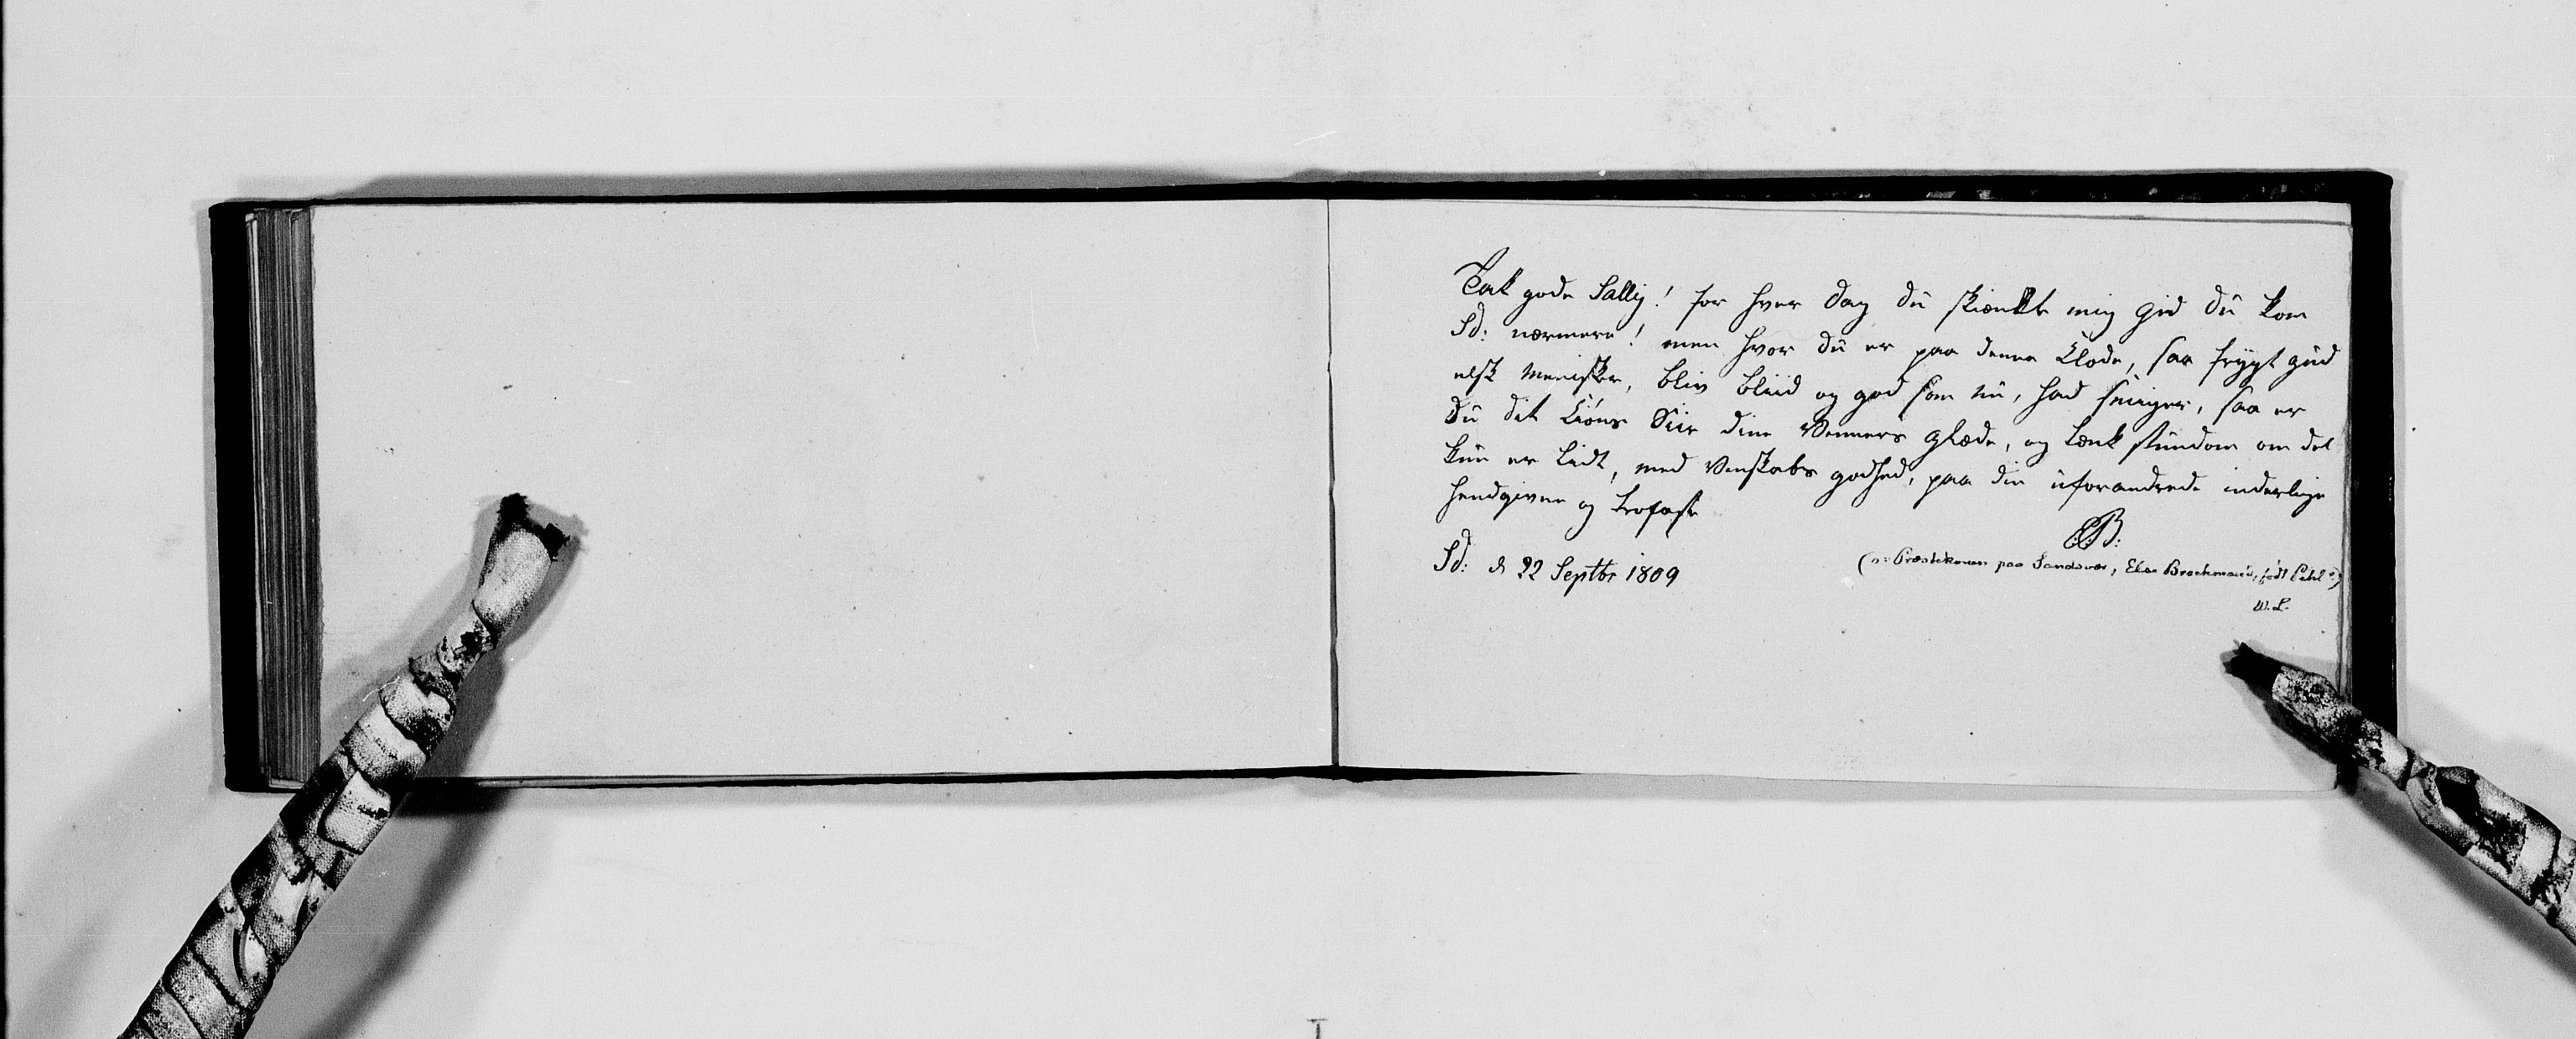 Tak gode Sally! for hver Dag du skienkte mig gid du kom
Sd: nærmere! men hvor du er paa denne Klode, saa frygt gud
elsk Menisker, bliv bliid og god som nu, had svinger, saa er
du dit Kiøns Siir dine Venners Glæde, og tænk stundom om det
kun er lidt, med Venskabs godhed, paa din uforandrede inderlige
hendgivne og trofaste
EB:
Sd: d 22 Septbr 1809
(o: Præstekonen paa Sandsvær, Else Brockmand, født Dahl?)
W. L.